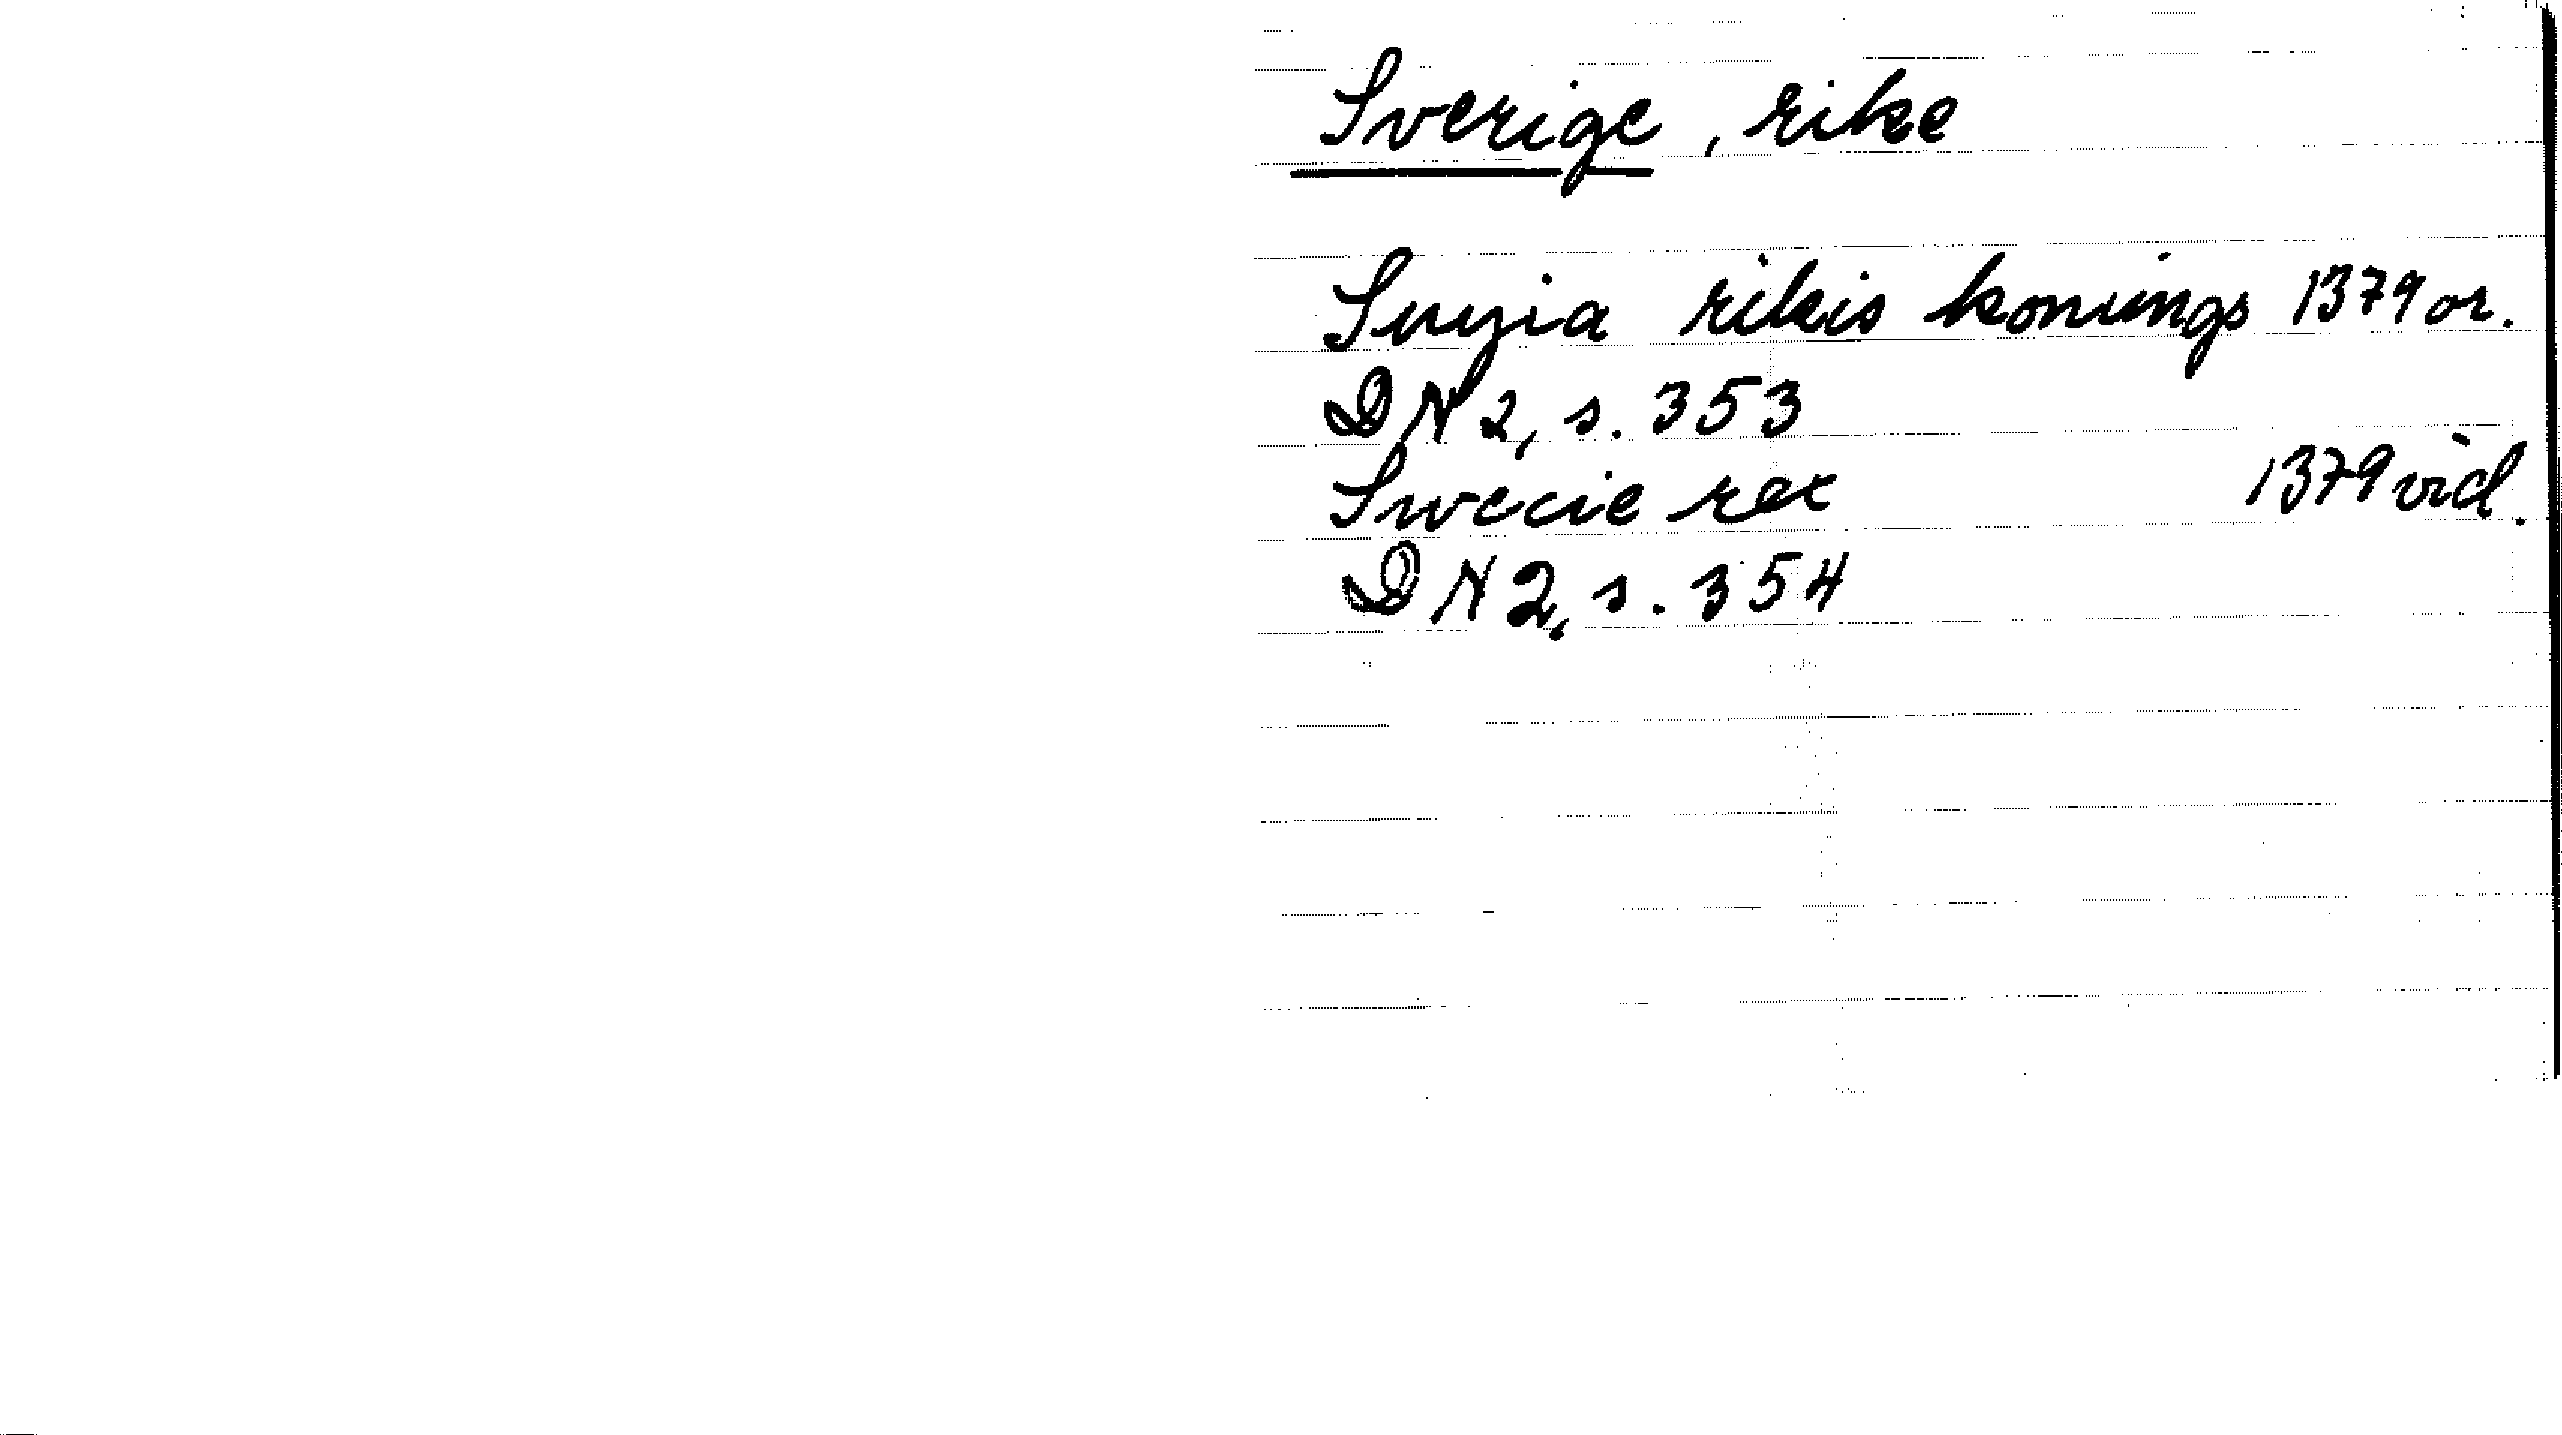 Sverige, rike
Suyia rikis konungs 1379 or.
DN 2, s. 353
Swecie rex 1379 vid.
DN 2, s. 354